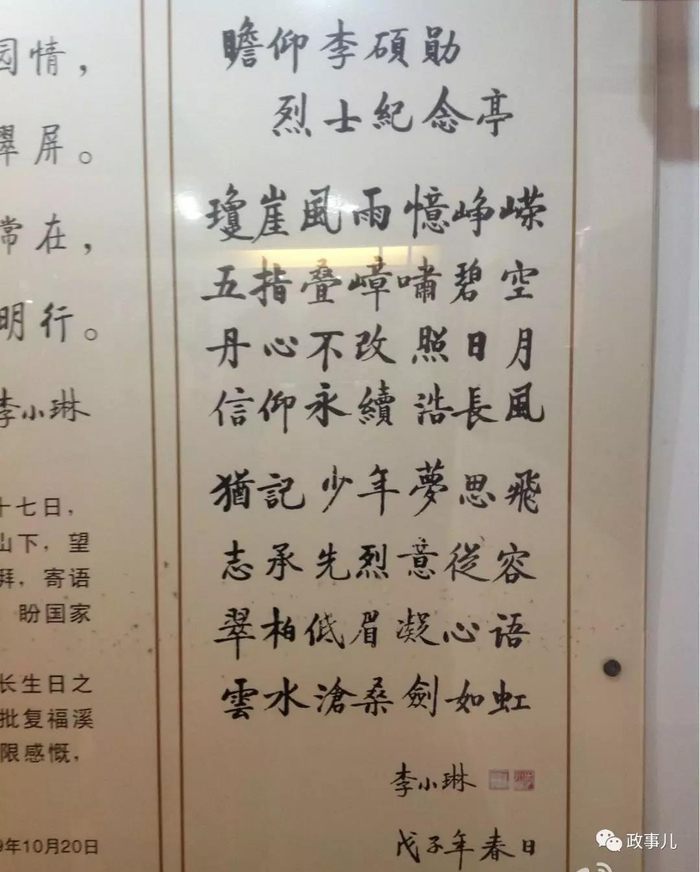 园情，
翠屏。
常在，
明行。
李小琳
十七日，
山下，望
湃，寄语
盼国家
长生日之
批复福溪
限感慨，
9年10月20日
瞻仰李硕勋
烈士紀念亭
瓊崖風雨憶峥嵘
五指叠嶂嘯碧空
丹心不改照日月
信仰永續浩長風
猶記少年夢思飛
志承先烈意從容
翠柏低眉凝心語
雲水滄桑劍如虹
李小琳
戊子年春日
政事儿